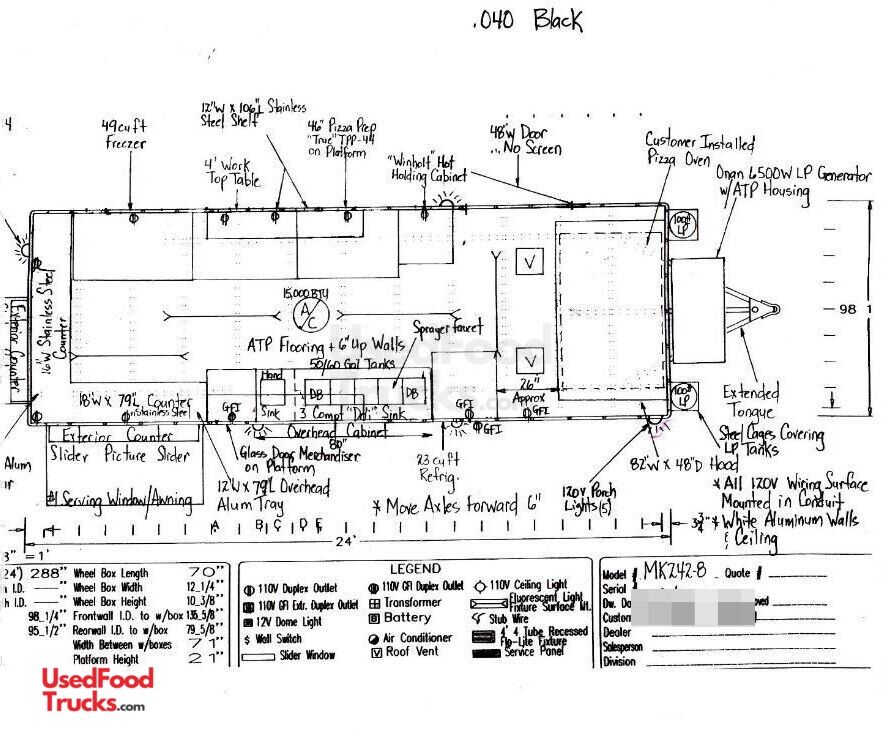 .040 Black
4
49 cu ft
Freezer
12"W x 106"L Stainless
Steel Shelf
4' Work
Top Table
46" Pizza Prep
"True" TPP-44
on Platform
"Winholt" Hot
Holding Cabinet
48"W Door
...No Screen
Customer Installed
Pizza Oven
Onan 6500W LP Generator
w/ATP Housing
100#
LP
V
98 1
16"W Stainless Steel
Counter
Exterior Counter
15,000 BTU
A/C
ATP Flooring + 6" Up Walls
50/60 Gal Tanks
Sprayer faucet
V
26"
Approx
18"W x 79"L Counter
Stainless Steel
Hand
Sink
DB
DB
3 Comp "Deli" Sink
GFI
GFI
GFI
GFI
100#
LP
Extended
Tongue
Exterior Counter
Slider Picture Slider
Overhead Cabinet
80"
Glass Door Merchandiser
on Platform
23 cu ft
Refrig.
Steel Cages Covering
LP Tanks
82"W x 48"D Hood
Alum
#1 Serving Window/Awning
12"W x 79"L Overhead
Alum Tray
* Move Axles forward 6"
120V Porch
Lights(5)
* All 120V Wiring Surface
Mounted in Conduit
* White Aluminum Walls
& Ceiling
A B C D E
24'
3 3/4"
3" = 1'
24') 288" Wheel Box Length 70"
I.D. Wheel Box Width 12_1/4"
h I.D. Wheel Box Height 10_3/8"
98_1/4" Frontwall I.D. to w/box 135_5/8"
95_1/2" Rearwall I.D. to w/box 79_5/8"
Width Between w/boxes 71"
Platform Height 21"
LEGEND
110V Duplex Outlet
110V GFI Duplex Outlet
110V Ceiling Light
110V GFI Extr. Duplex Outlet
Transformer
Fluorescent Light
Fixture Surface Mt.
12V Dome Light
B Battery
Stub Wire
$ Wall Switch
Air Conditioner
4' 4 Tube Recessed
Flo-Lite Fixture
Slider Window
V Roof Vent
Service Panel
Model # MK242-8 Quote #
Serial
Dw. Do oved
Custom
Dealer
Salesperson
Division
UsedFood
Trucks.com
UsedFood
Trucks.com